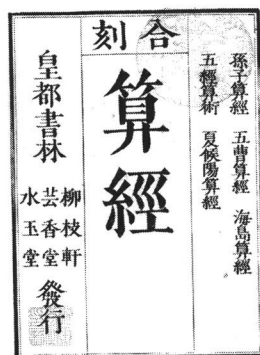 孫子算經 五曹算經 海島算經
五經算術 夏候陽算經
合刻
算經
皇都書林
柳枝軒
芸香堂
水玉堂
發行